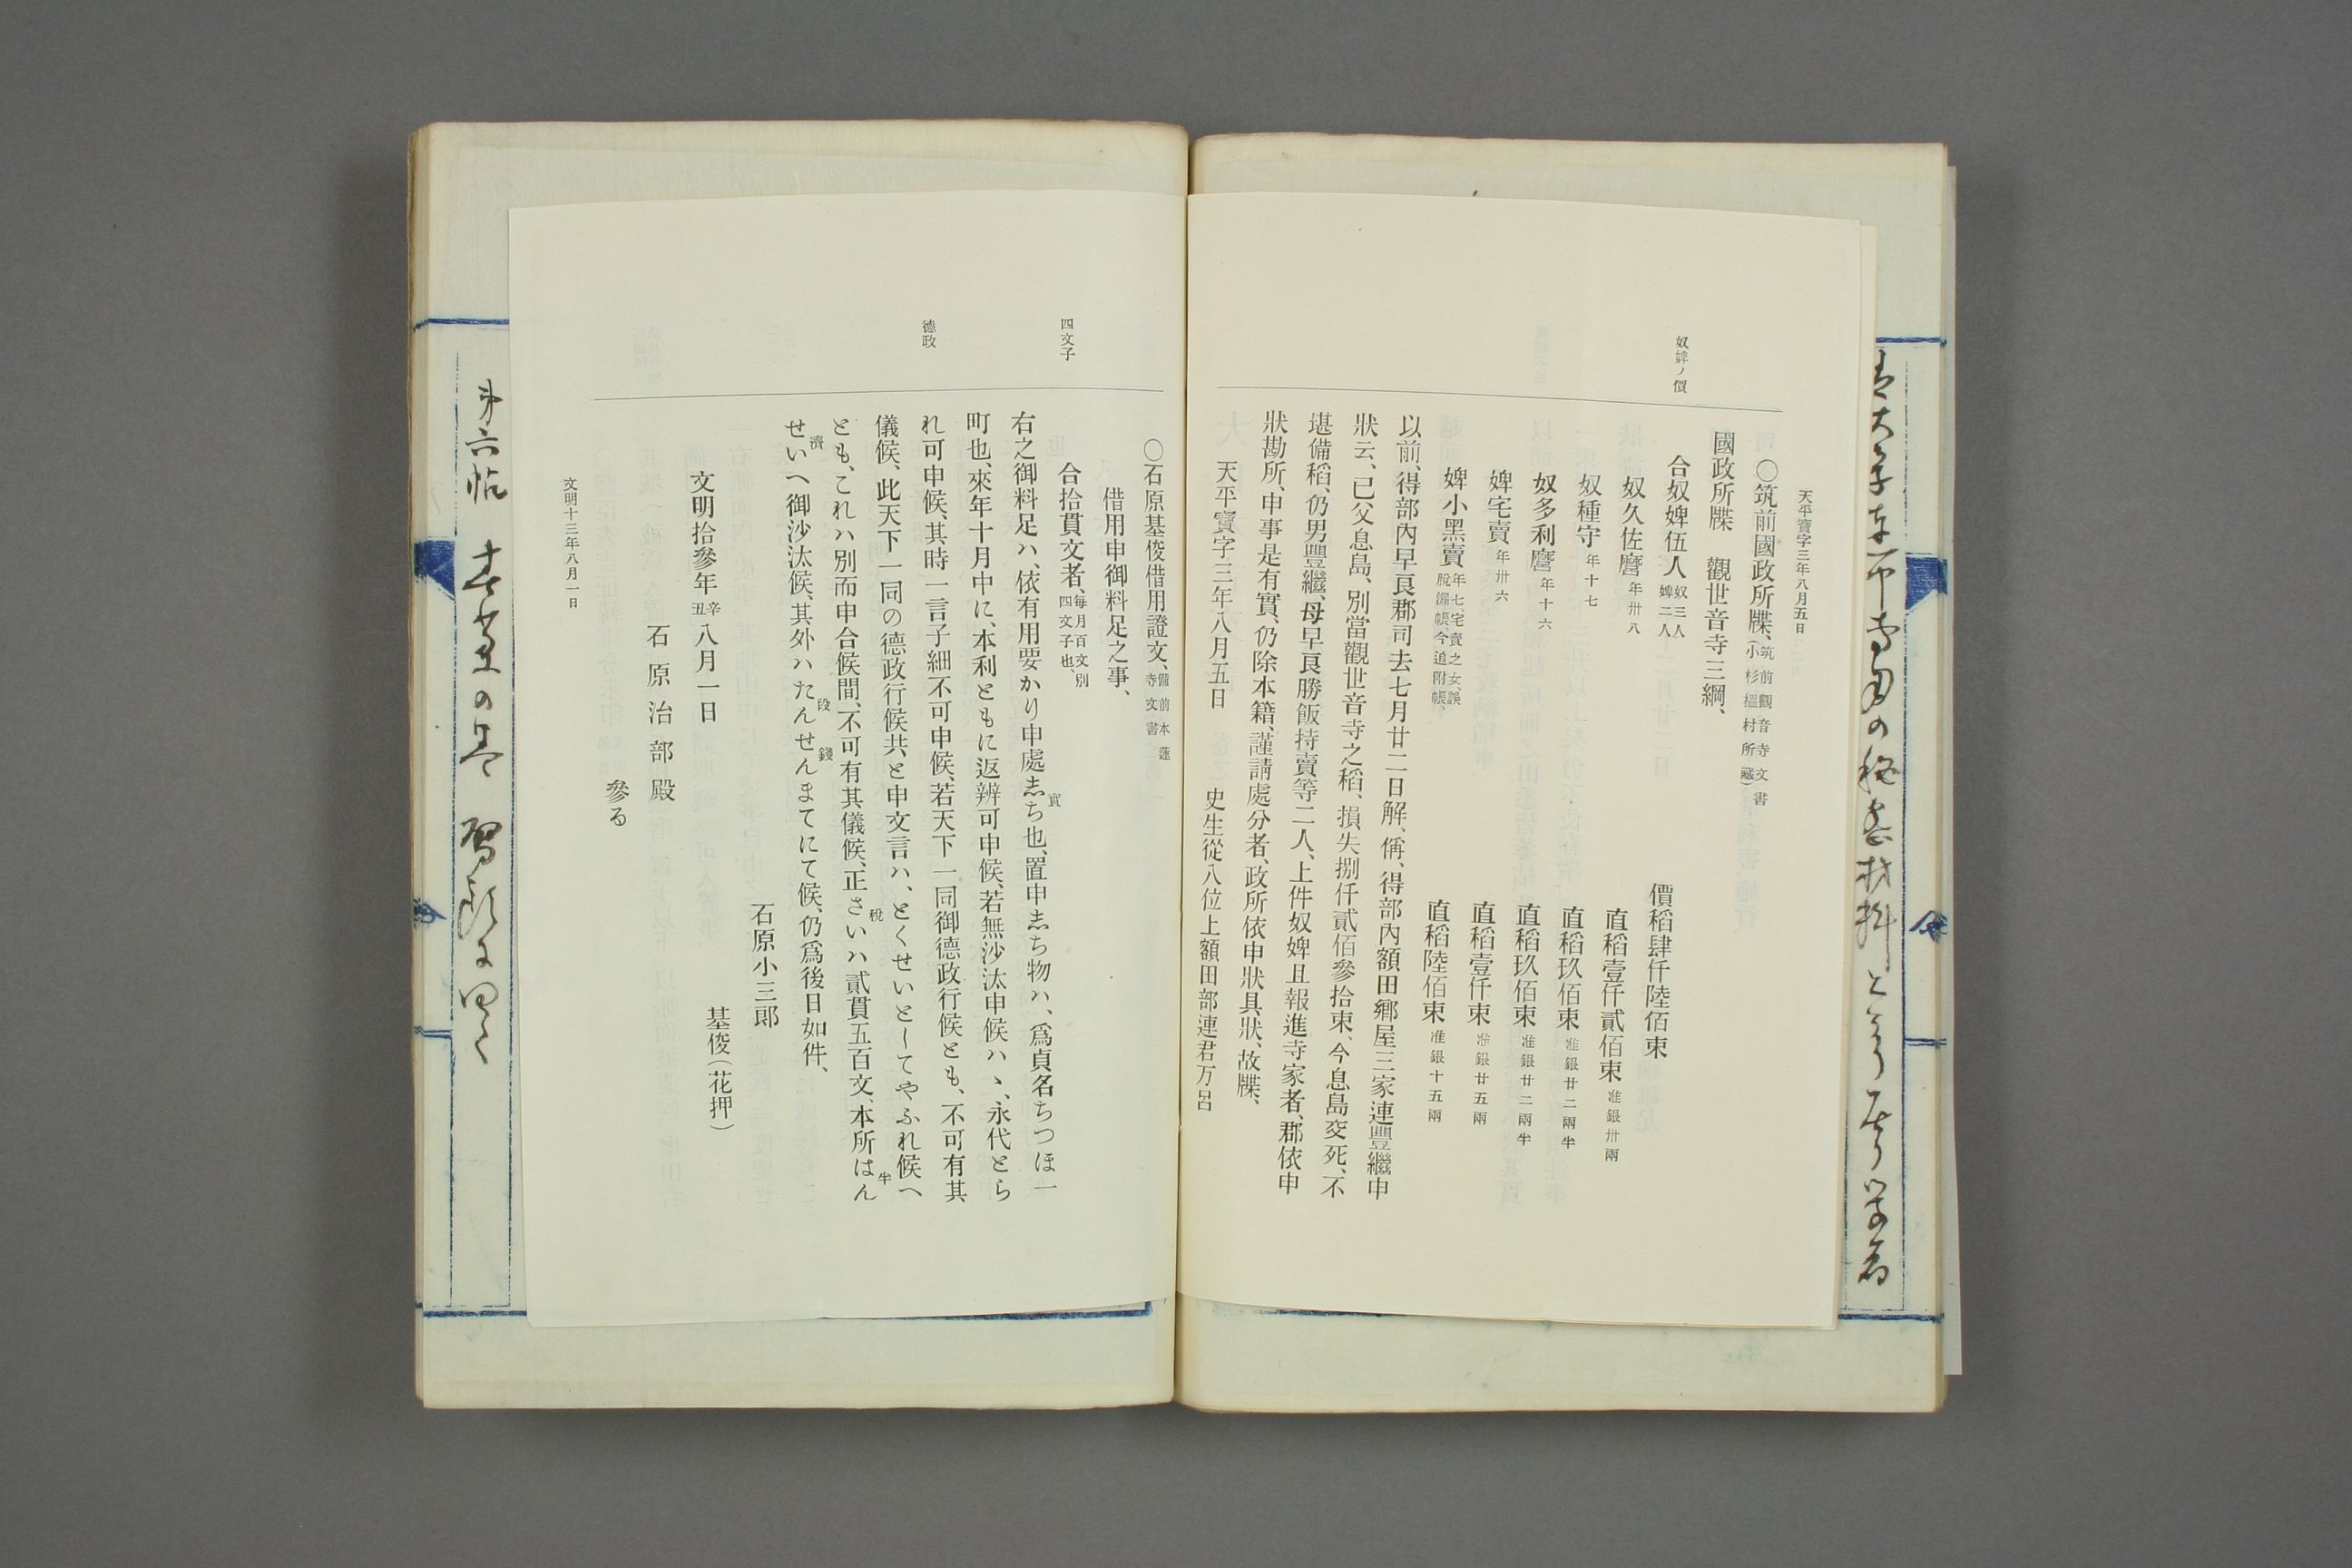 天平寶字三年八月五日
〇筑前國政所牒、(筑前觀音寺文書 小杉榲村所藏)
奴婢ノ價
國政所牒 觀世音寺三綱、
合奴婢伍人 奴三人 婢二人 價稻肆仟陸佰束
奴久佐麿 年卅八 直稻壹仟貳佰束 准銀卅兩
奴種守 年十七 直稻玖佰束 准銀廿二兩半
奴多利麿 年十六 直稻玖佰束 准銀廿二兩半
婢宅賣 年卅六 直稻壹仟束 准銀廿五兩
婢小黑賣 年七、宅賣之女、誤脫漏帳、今追附帳、 直稻陸佰束 准銀十五兩
以前、得部內早良郡司去七月廿二日解、偁、得部內額田鄕屋三家連豐繼申
狀云、已父息島、別當觀世音寺之稻、損失捌仟貳佰參拾束、今息島死、不
堪備稻、仍男豐繼、母早良勝飯持賣等二人、上件奴婢且報進寺家者、郡依申
狀勘所、申事是有實、仍除本籍、謹請處分者、政所依申狀具狀、故牒、
天平寶字三年八月五日 史生從八位上額田部連君万呂
〇石原基俊借用證文、備前本蓮寺文書
借用申御料足之事、
四文子
合拾貫文者、每月百文別四文子也、
右之御料足ハ、依有用要かり申處志ち也、置申志ち物ハ、爲貞名ちつほ一
實
町也、來年十月中に、本利ともに返辨可申候、若無沙汰申候ハヽ、永代とら
德政
れ可申候、其時一言子細不可申候、若天下一同御德政行候とも、不可有其
儀候、此天下一同の德政行候共、と申文言ハ、とくせいとしてやふれ候へ
とも、これハ別而申合候間、不可有其儀候、正さいハ貳貫五百文、本所はん
稅 半
せいへ御沙汰候、其外ハたんせんまてにて候、仍爲後日如件、
濟 段 錢
石原小三郞
文明拾參年辛丑八月一日 基俊(花押)
石原治部殿
參る
文明十三年八月一日
第六帖